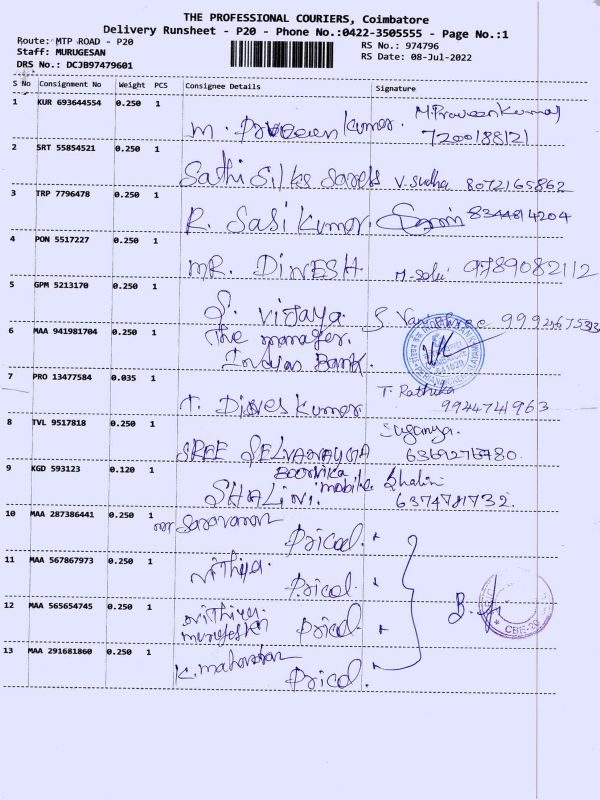 THE PROFESSIONAL COURIERS, Coimbatore
Delivery Runsheet - P20 - Phone No.:0422-3505555 - Page No.:1
Route: MTP ROAD - P20
RS No.: 974796
Staff: MURUGESAN
RS Date: 08-Jul-2022
DRS No.: DCJB97479601
S No Consignment No Weight PCS Consignee Details Signature
1 KUR 693644554 0.250 1
M. Praveen Kumar. M.Praveenkumar
7200188121
2 SRT 55854521 0.250 1
Sathi Silks Sarees V. Sudha 8072165862
3 TRP 7796478 0.250 1
R. Sasi Kumar. 8344814204
4 PON 5517227 0.250 1
MR. DINESH 9789082112
5 GPM 5213170 0.250 1
S. Vijaya.
6 MAA 941981704 0.250 1
The manager.
Indian Bank.
7 PRO 13477584 0.035 1
T. Dines Kumar. T. Rathika
9944741963
8 TVL 9517818 0.250 1
SREE SELVANAYGA Suganya.
9 KGD 593123 0.120 1
BOORVIKA
SHALINI. mobile Shalini
10 MAA 287386441 0.250 1
mr Saravanan
Pricol.
11 MAA 567867973 0.250 1
Nithiya.
Pricol.
12 MAA 565654745 0.250 1
Nithiya.
murugesan Pricol.
CBE-20
13 MAA 291681860 0.250 1
Pricol.